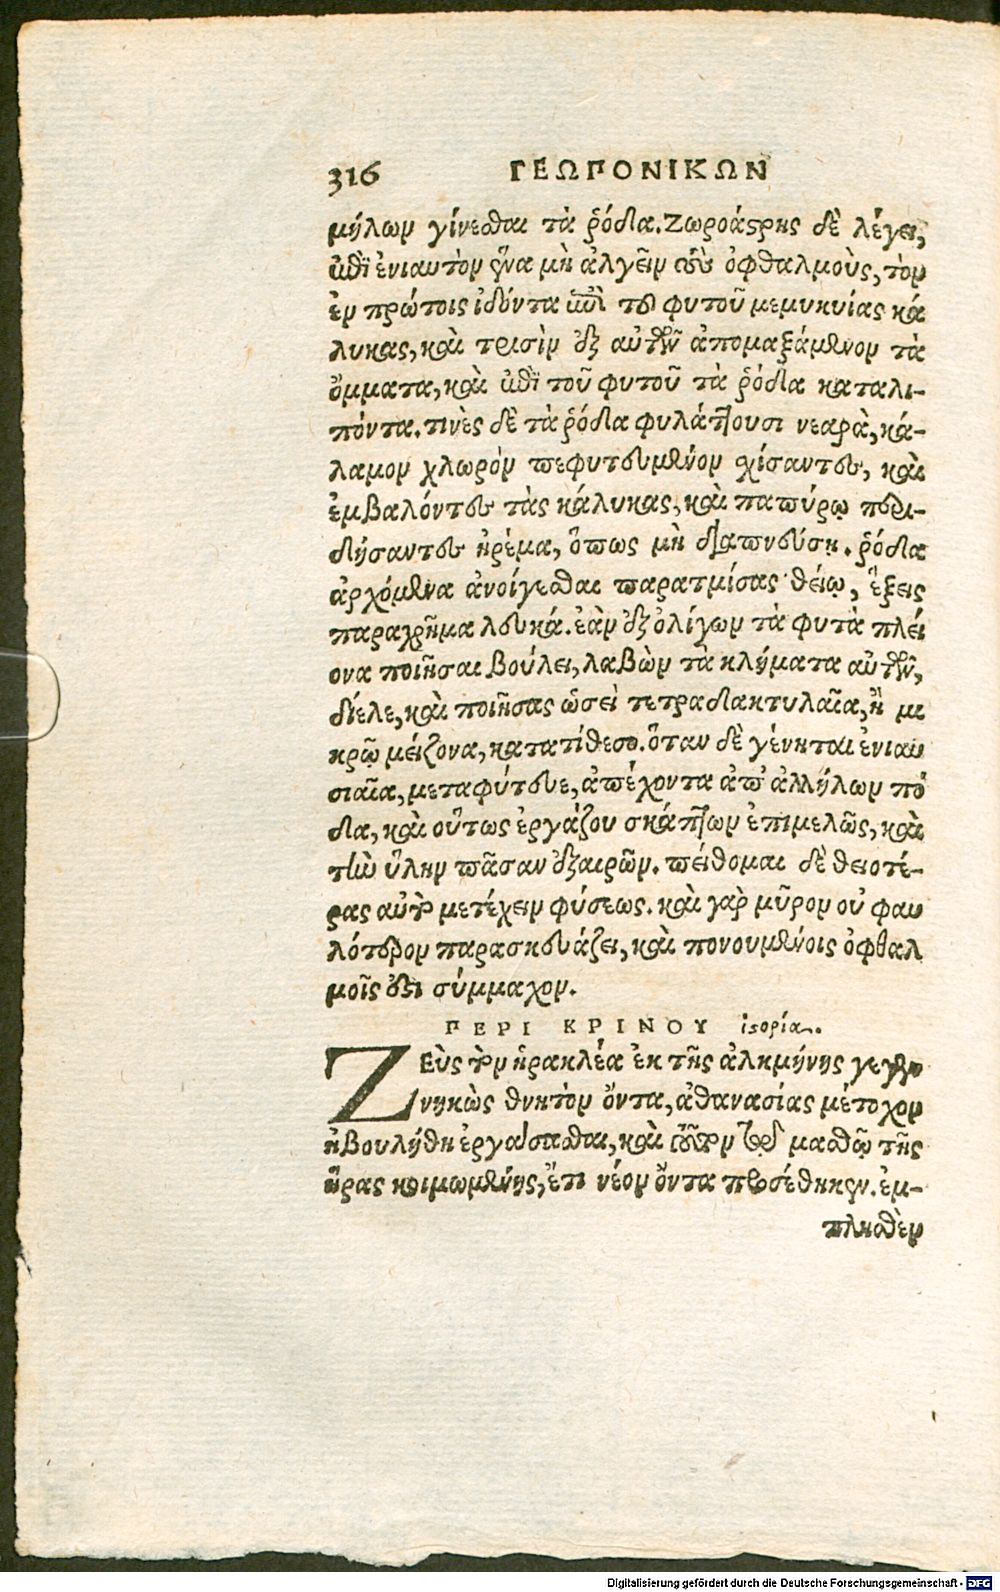 316 ΓΕΩΠΟΝΙΚΩΝ
μήλων γίνεσθαι τὰ ῥόδια. Ζωροάστρης δὲ λέγει,
ἐπὶ ἐνιαυτὸν ἵνα μὴ ἀλγεῖν τοὺς ὀφθαλμοὺς, τὸν
ἐν πρώτοις ἰδόντα ἐπὶ τοῦ φυτοῦ μεμυκυίας κά
λυκας, καὶ τρισὶν ἐξ αὐτῶν ἀπομαξάμενον τὰ
ὄμματα, καὶ ἐπὶ τοῦ φυτοῦ τὰ ῥόδια καταλι-
πόντα. τινὲς δὲ τὰ ῥόδια φυλάττουσι νεαρὰ, κά-
λαμον χλωρὸν πεφυτευμένον σχίσαντες, καὶ
ἐμβαλόντες τὰς κάλυκας, καὶ παπύρῳ περι-
δήσαντες ἠρέμα, ὅπως μὴ διαπνεύσῃ. ῥόδια
ἀρχόμενα ἀνοίγεσθαι παρατμίσας θείῳ, ἕξεις
παραχρῆμα λευκά. ἐὰν ἐξ ὀλίγων τὰ φυτὰ πλεί
ονα ποιῆσαι βούλει, λαβὼν τὰ κλήματα αὐτῶν,
δίελε, καὶ ποιῆσας ὡσεὶ τετραδακτυλαῖα, ἢ μι
κρῷ μείζονα, κατατίθεσο. ὅταν δὲ γένηται ἐνιαυ
σιαῖα, μεταφύτευε, ἀπέχοντα ἀπ' ἀλλήλων πό
δα, καὶ οὕτως ἐργάζου σκάπτων ἐπιμελῶς, καὶ
τὴν ὕλην πᾶσαν ἐξαιρῶν. πείθομαι δὲ θειοτέ-
ρας αὐτὸ μετέχειν φύσεως. καὶ γὰρ μῦρον οὐ φαυ
λότερον παρασκευάζει, καὶ πονουμένοις ὀφθαλ
μοῖς ἐστι σύμμαχον.
ΠΕΡΙ ΚΡΙΝΟΥ ἱστορία.
ΖΕὺς τὸν ἡρακλέα ἐκ τῆς ἀλκμήνης γεγεν
νηκὼς θνητὸν ὄντα, ἀθανασίας μέτοχον
ἠβουλήθη ἐργάσασθαι, καὶ τοῦτον τῷ μασθῷ τῆς
ἥρας κοιμωμένης, ἔτι νέον ὄντα προσέθηκεν. ἐμ-
πλησθὲν